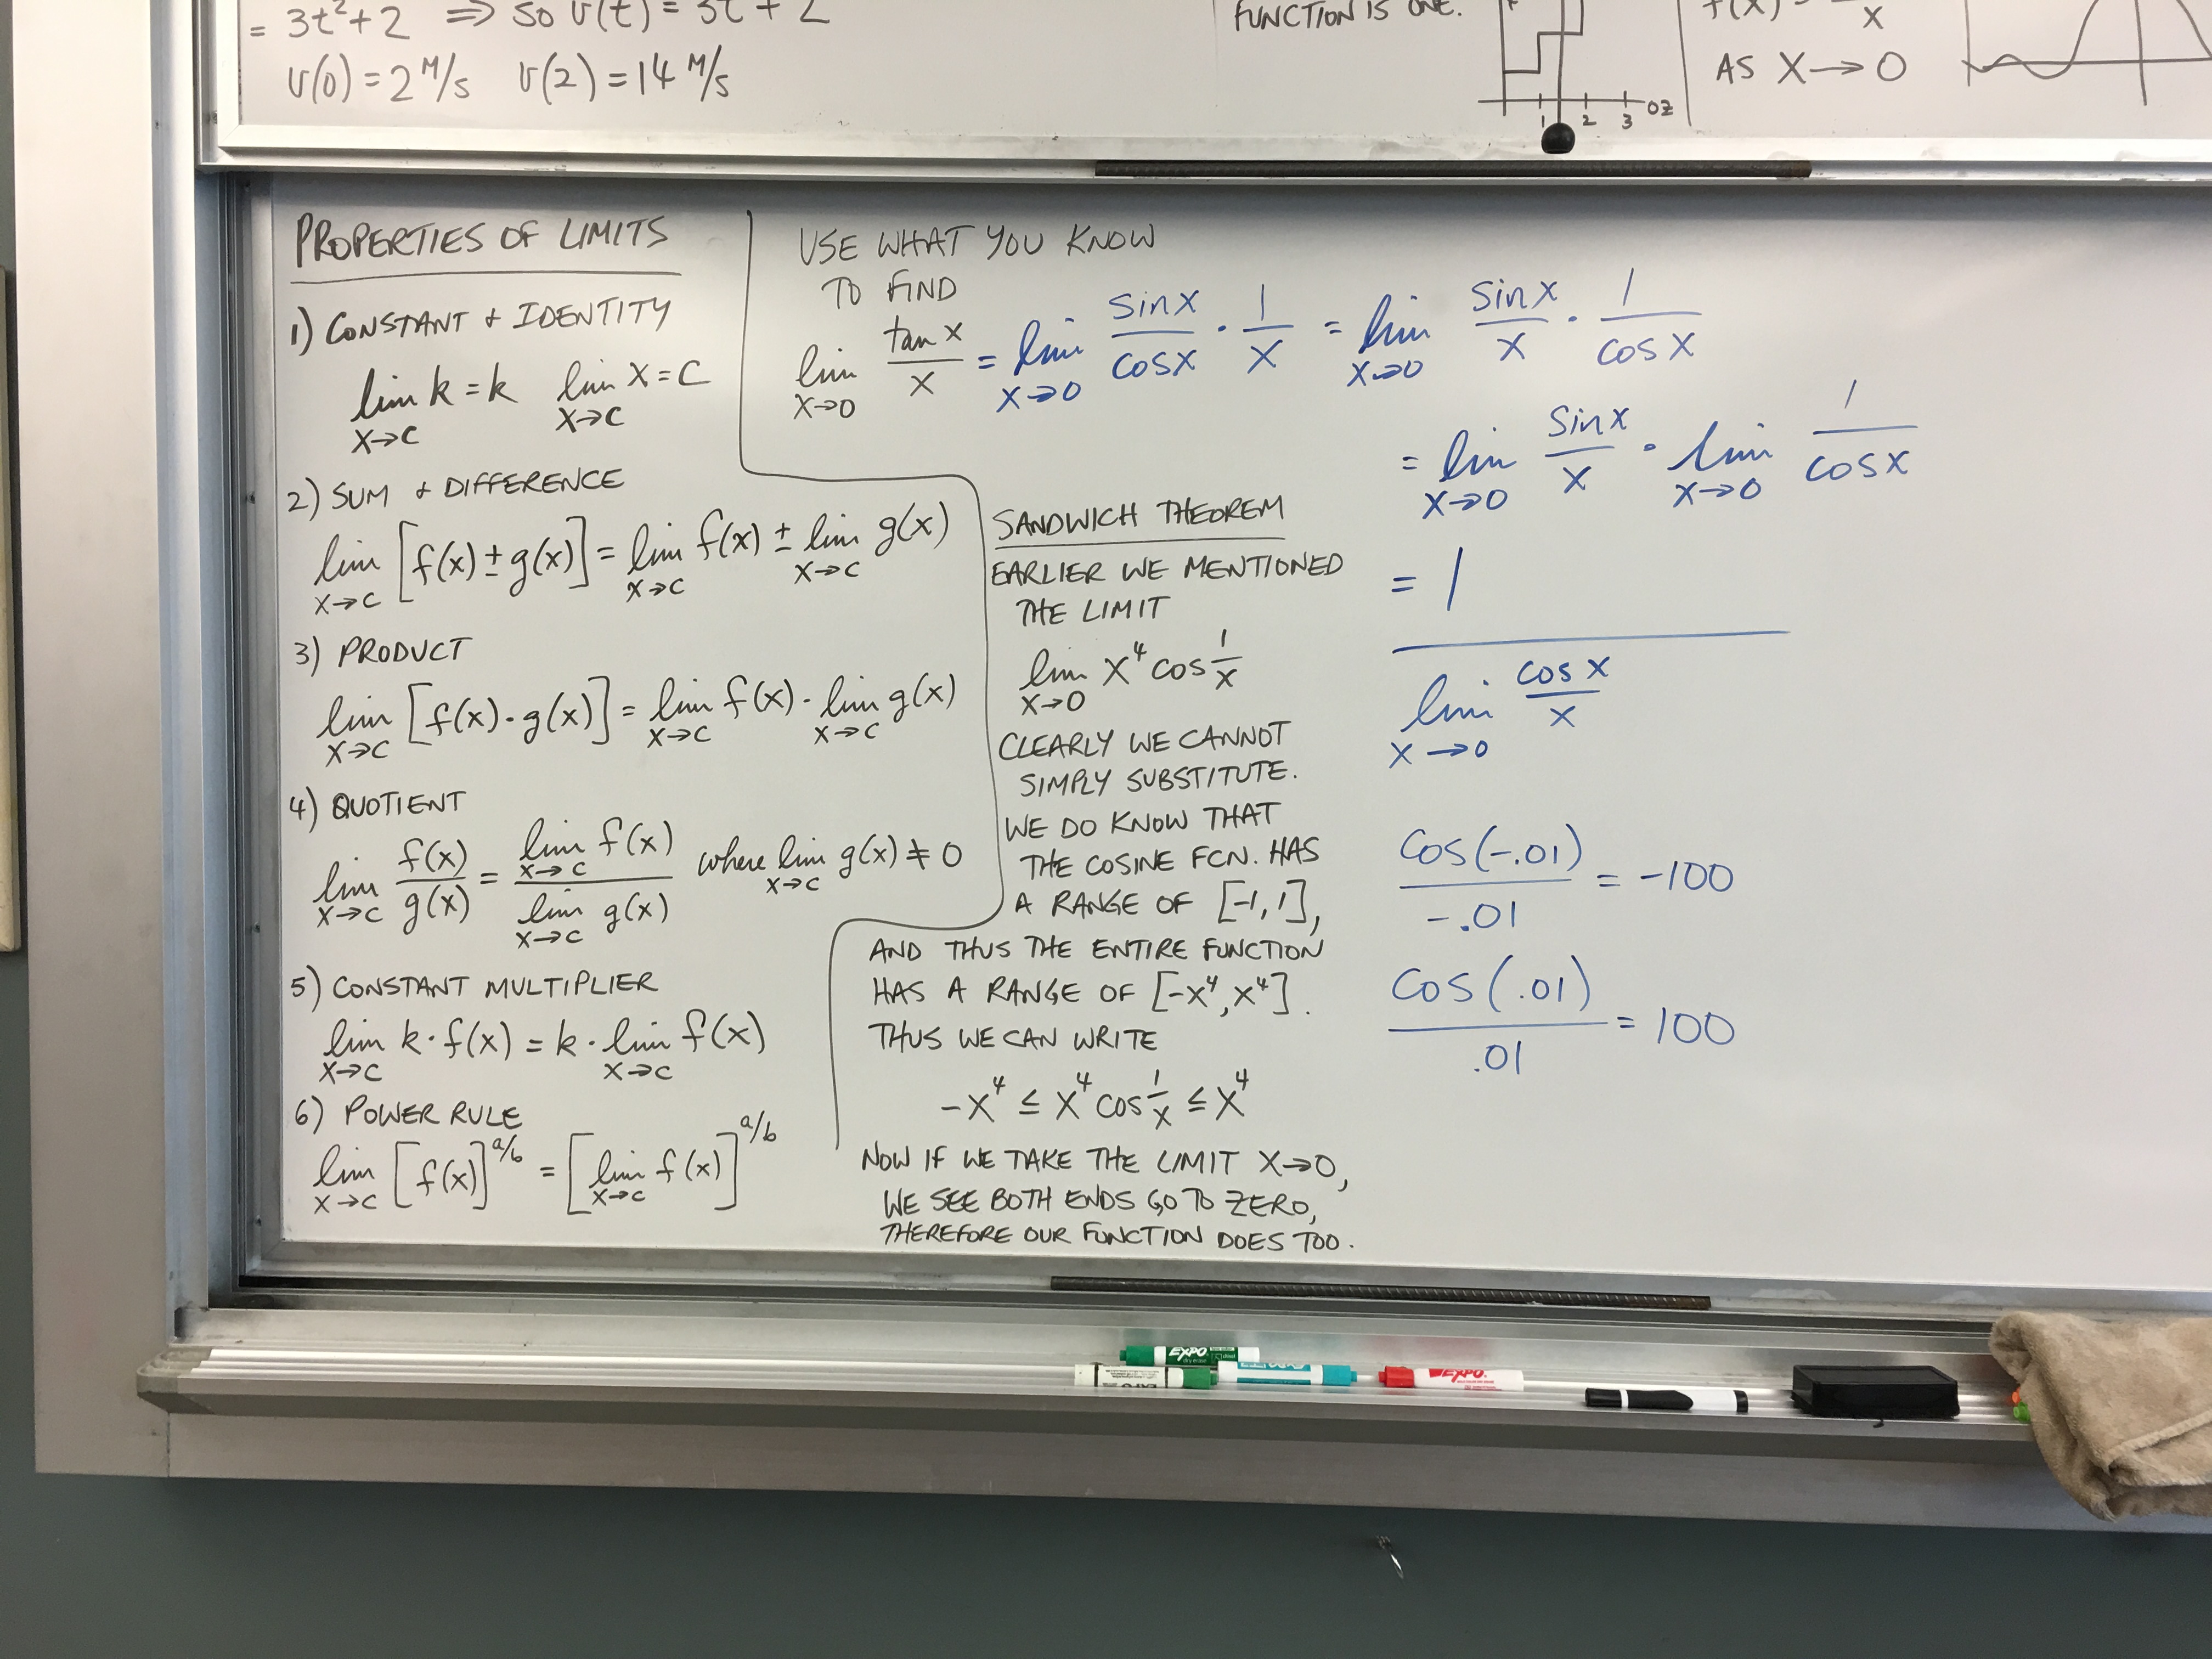 = 3t²+2 ⇒ so v(t) = 3t + 2
v(0) = 2 M/s v(2) = 14 M/s
FUNCTION IS ONE.
1 2 3 oz
f(x) = x
AS X→0
PROPERTIES OF LIMITS
1) CONSTANT + IDENTITY
lim k = k lim x = c
x→c x→c
2) SUM + DIFFERENCE
lim [f(x) ± g(x)] = lim f(x) ± lim g(x)
x→c x→c x→c
3) PRODUCT
lim [f(x) · g(x)] = lim f(x) · lim g(x)
x→c x→c x→c
4) QUOTIENT
lim f(x)/g(x) = lim f(x) / lim g(x) where lim g(x) ≠ 0
x→c x→c x→c x→c
5) CONSTANT MULTIPLIER
lim k · f(x) = k · lim f(x)
x→c x→c
6) POWER RULE
lim [f(x)]^a/b = [lim f(x)]^a/b
x→c x→c
USE WHAT YOU KNOW
TO FIND
lim tan x / x = lim sin x / cos x · 1/x = lim sin x / x · 1 / cos x
x→0 x→0 x→0
= lim sin x / x · lim 1 / cos x
x→0 x→0
= 1
lim cos x / x
x→0
cos(-.01) / -.01 = -100
cos(.01) / .01 = 100
SANDWICH THEOREM
EARLIER WE MENTIONED
THE LIMIT
lim x⁴ cos 1/x
x→0
CLEARLY WE CANNOT
SIMPLY SUBSTITUTE.
WE DO KNOW THAT
THE COSINE FCN. HAS
A RANGE OF [-1, 1],
AND THUS THE ENTIRE FUNCTION
HAS A RANGE OF [-x⁴, x⁴].
THUS WE CAN WRITE
-x⁴ ≤ x⁴ cos 1/x ≤ x⁴
NOW IF WE TAKE THE LIMIT X→0,
WE SEE BOTH ENDS GO TO ZERO,
THEREFORE OUR FUNCTION DOES TOO.
EXPO
dry erase
EXPO
EXPO